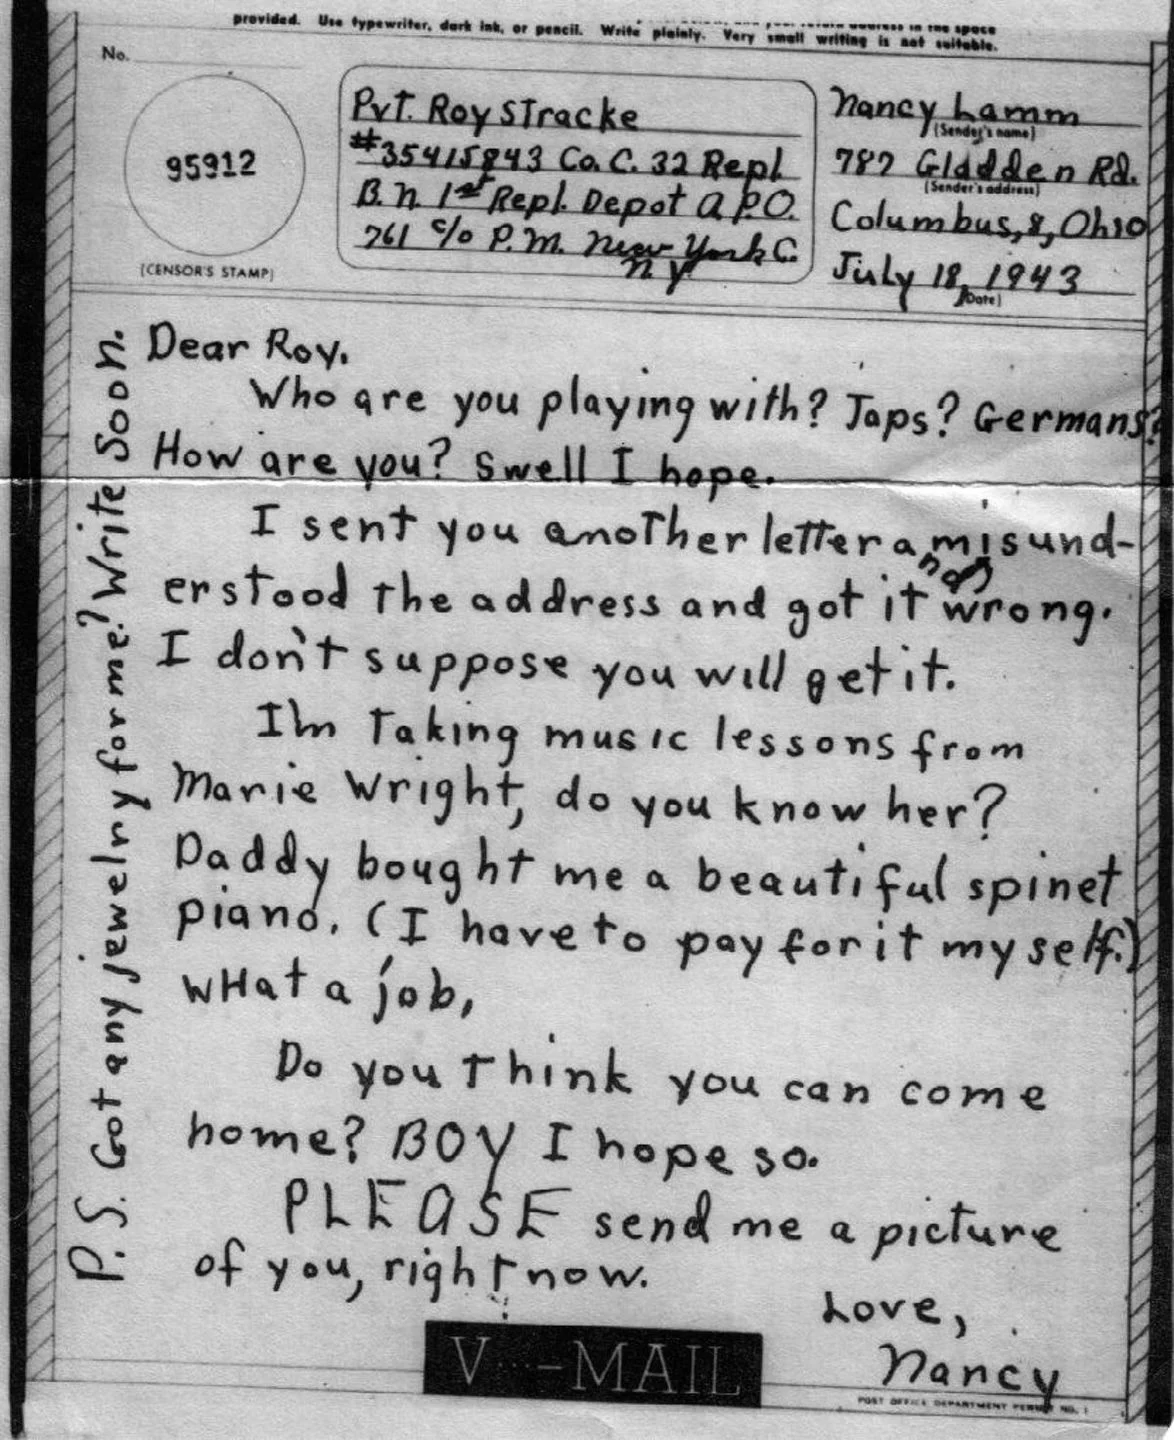 provided. Use typewriter, dark ink, or pencil. Write plainly. Very small writing is not suitable.
No.
95912
(CENSOR'S STAMP)
Pvt. Roy Stracke
#35415843 Co. C. 32 Repl.
B.n. 1st Repl. Depot A.P.O.
761 c/o P.M. New York C.
n.y.
Nancy Lamm
(Sender's name)
787 Gladden Rd.
(Sender's address)
Columbus, 8, Ohio
July 18, 1943
(Date)
Dear Roy.
Who are you playing with? Japs? Germans?
How are you? Swell I hope.
I sent you another letter a misund-
erstood the address and got it wrong.
I don't suppose you will get it.
I'm taking music lessons from
Marie Wright, do you know her?
Daddy bought me a beautiful spinet
piano. (I have to pay for it my self.)
wHat a job,
Do you think you can come
home? BOY I hope so.
PLEASE send me a picture
of you, right now.
Love,
Nancy
P.S. Got any jewelry for me? Write Soon.
V···-MAIL
POST OFFICE DEPARTMENT PERMIT NO. 1